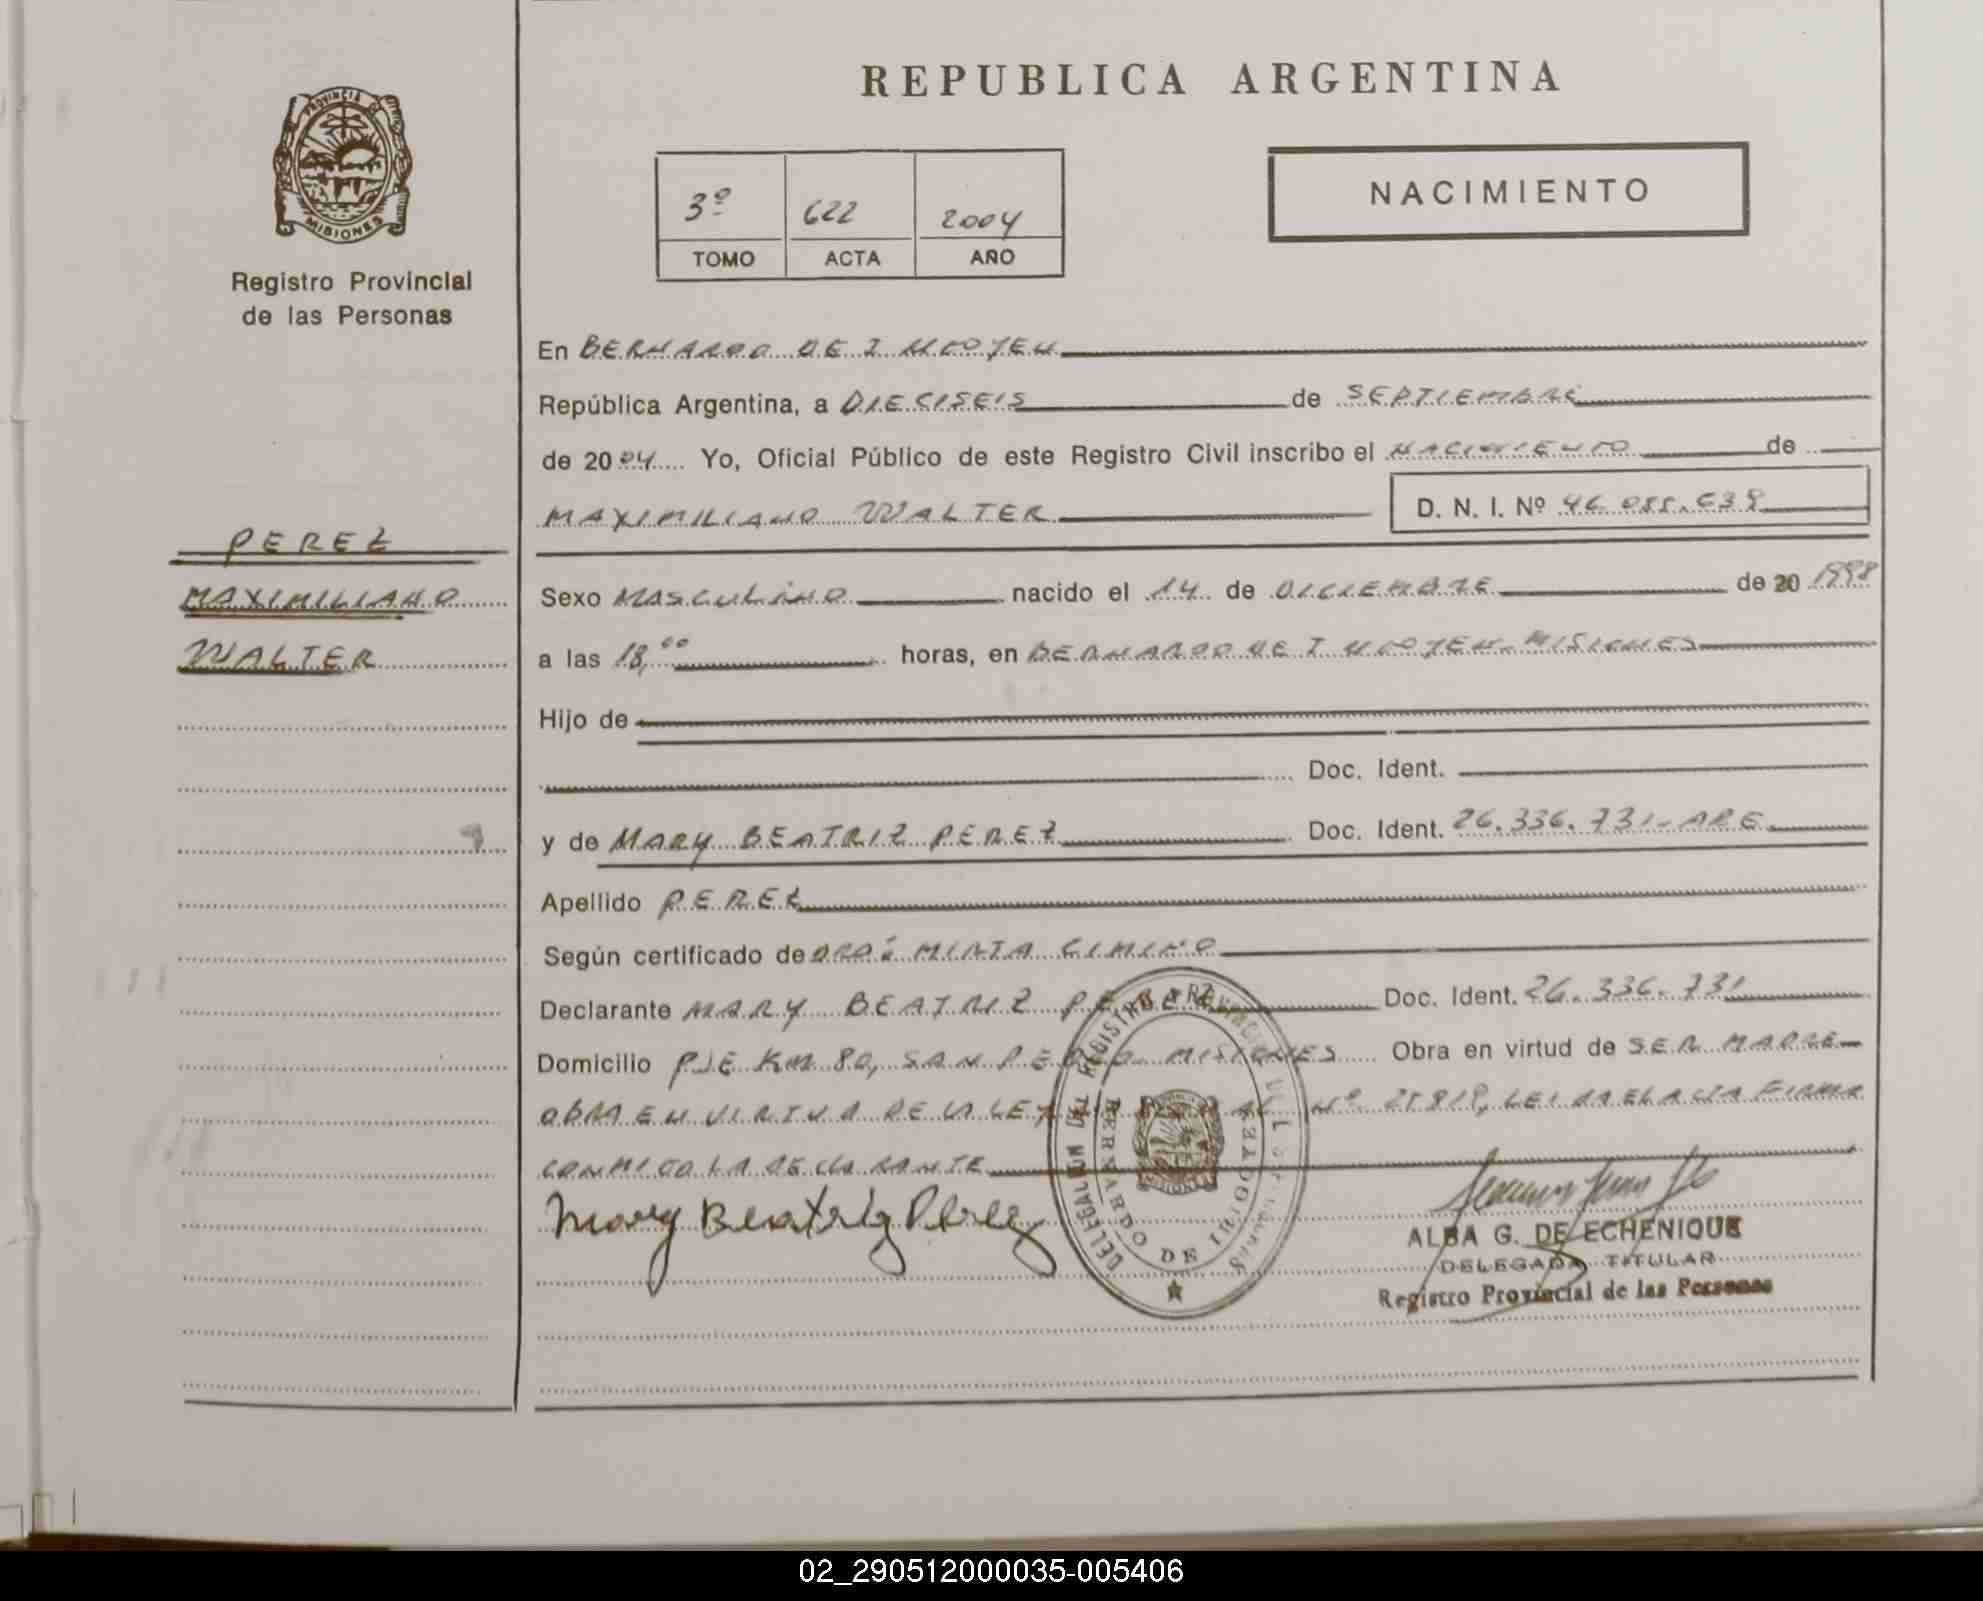 REPUBLICA ARGENTINA
PROVINCIA DE
MISIONES
Registro Provincial
de las Personas
3º 622 2004
TOMO ACTA AÑO
NACIMIENTO
En BERNARDO DE IRIGOYEN
República Argentina, a DIECISEIS de SEPTIEMBRE
de 2004 Yo, Oficial Público de este Registro Civil inscribo el NACIMIENTO de
MAXIMILIANO WALTER D. N. I. Nº 46.085.639
PEREZ
MAXIMILIANO
WALTER
Sexo MASCULINO nacido el 14 de DICIEMBRE de 20 1998
a las 18,00 horas, en BERNARDO DE IRIGOYEN-MISIONES
Hijo de
Doc. Ident.
y de MARY BEATRIZ PEREZ Doc. Ident. 26.336.731-ARG
Apellido PEREZ
Según certificado de DRA. MIRTA CIMINO
Declarante MARY BEATRIZ PEREZ Doc. Ident. 26.336.731
Domicilio PJE KM 80, SAN PEDRO MISIONES Obra en virtud de SER MADRE
OBRA EN VIRTUD DE LA LEY Nº 25818, LEIDA EL ACTA FIRMA
CONMIGO LA DECLARANTE
Mary Beatriz Perez
DELEGACION DEL REGISTRO PROVINCIAL DE LAS PERSONAS
BERNARDO DE IRIGOYEN
MISIONES
ALBA G. DE ECHENIQUE
DELEGADA TITULAR
Registro Provincial de las Personas
02_290512000035-005406